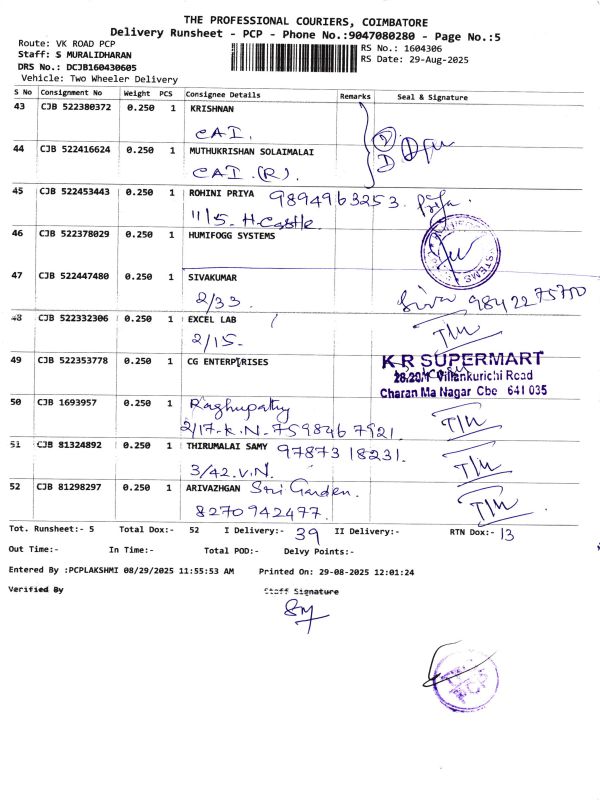 THE PROFESSIONAL COURIERS, COIMBATORE
Delivery Runsheet - PCP - Phone No.:9047080280 - Page No.:5
Route: VK ROAD PCP
RS No.: 1604306
Staff: S MURALIDHARAN
RS Date: 29-Aug-2025
DRS No.: DCJB160430605
Vehicle: Two Wheeler Delivery
S No Consignment No Weight PCS Consignee Details Remarks Seal & Signature
43 CJB 522380372 0.250 1 KRISHNAN
CAI.
44 CJB 522416624 0.250 1 MUTHUKRISHAN SOLAIMALAI
CAI (R).
45 CJB 522453443 0.250 1 ROHINI PRIYA 9894963253. Priya.
11/5. H.Castle.
46 CJB 522378029 0.250 1 HUMIFOGG SYSTEMS
47 CJB 522447480 0.250 1 SIVAKUMAR
2/33. Siva 9842275750
48 CJB 522332306 0.250 1 EXCEL LAB
2/15.
49 CJB 522353778 0.250 1 CG ENTERPRISES
K R SUPERMART
28,20/1 Villankurichi Road
Charan Ma Nagar Cbe 641 035
50 CJB 1693957 0.250 1 Raghupathy
2/17-K.N-7598467921.
51 CJB 81324892 0.250 1 THIRUMALAI SAMY 9787318231.
3/42.V.N.
52 CJB 81298297 0.250 1 ARIVAZHGAN Sri Garden.
8270942477.
Tot. Runsheet:- 5 Total Dox:- 52 I Delivery:- 39 II Delivery:- RTN Dox:- 13
Out Time:- In Time:- Total POD:- Delvy Points:-
Entered By :PCPLAKSHMI 08/29/2025 11:55:53 AM Printed On: 29-08-2025 12:01:24
Verified By Staff Signature
PCP